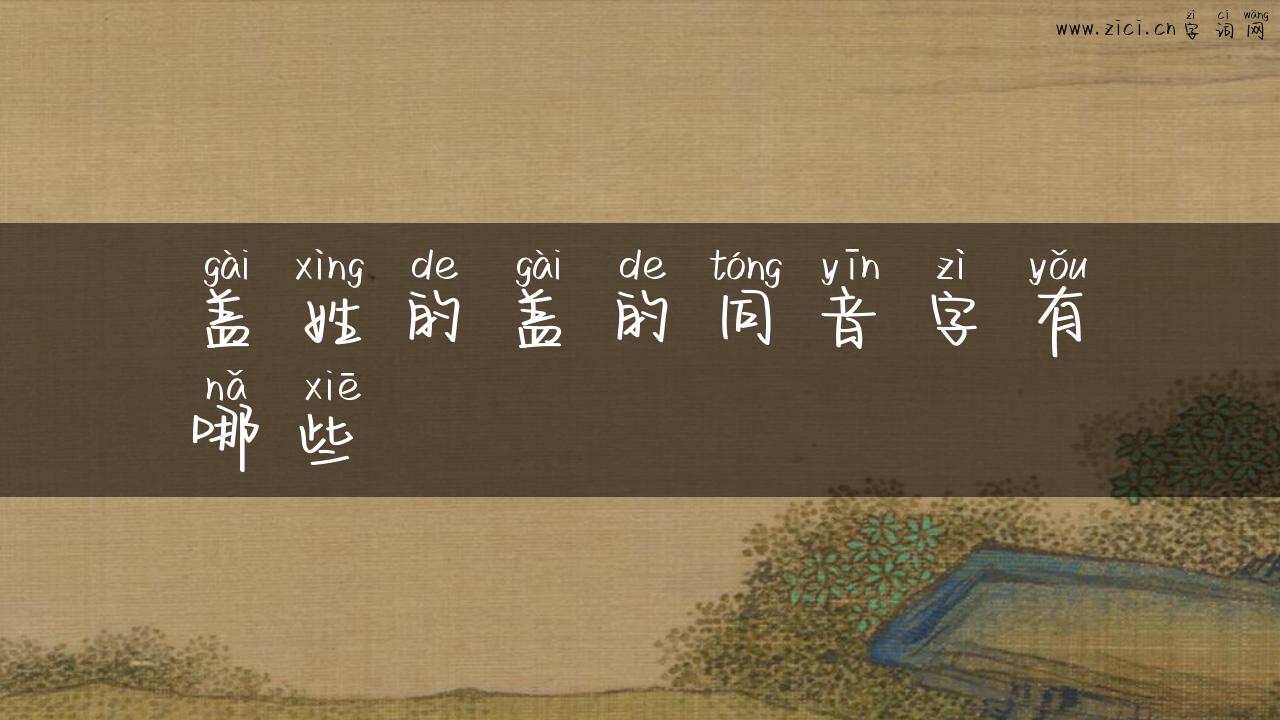 zì cí wǎng
www.zici.cn 字 词 网
gài xìng de gài de tóng yīn zì yǒu
盖 姓 的 盖 的 同 音 字 有
nǎ xiē
哪 些